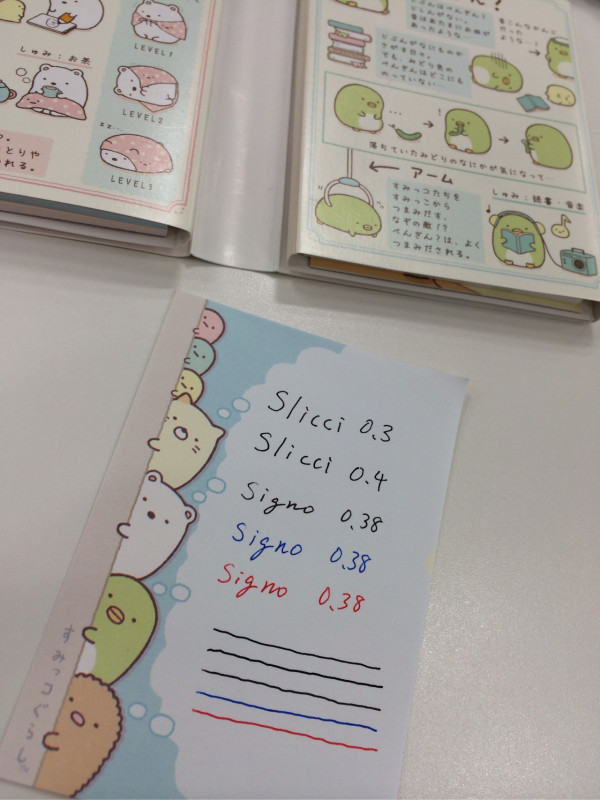 しゅみ：お茶
LEVEL1
LEVEL2
zz...
LEVEL3
とりや
れる。
じぶんがなにものか
さがすため、
でも、みどり色の
ぺんぎんはどこにも
のっていない…
落ちていたみどりのなにかが気になって…
アーム
すみっコたちを
すみっこから
つまみだす。
なぞの敵!?
ぺんぎん？は、よく
つまみだされる。
しゅみ：読書・音楽
Slicci 0.3
Slicci 0.4
Signo 0.38
Signo 0.38
Signo 0.38
すみっコぐらし